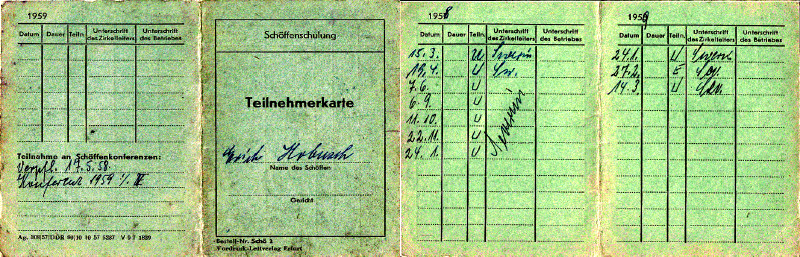 1959
Datum Dauer Teiln. Unterschrift des Zirkelleiters Unterschrift des Betriebes
Teilnahme an Schöffenkonferenzen:
Verpfl. 17.5.58.
Konferenz 1959
Schöffenschulung
Teilnehmerkarte
Erich Hobusch
Name des Schöffen
Gericht
Bestell-Nr. Schö 2
Vordruck-Leitverlag Erfurt
1958
Datum Dauer Teiln. Unterschrift des Zirkelleiters Unterschrift des Betriebes
15. 3. U
19. 4. U
7. 6. U
6. 9. U
11. 10. U
22. 11. U
24. 1. U
1959
Datum Dauer Teiln. Unterschrift des Zirkelleiters Unterschrift des Betriebes
24. 1. U
27. 2. E
14. 3. U